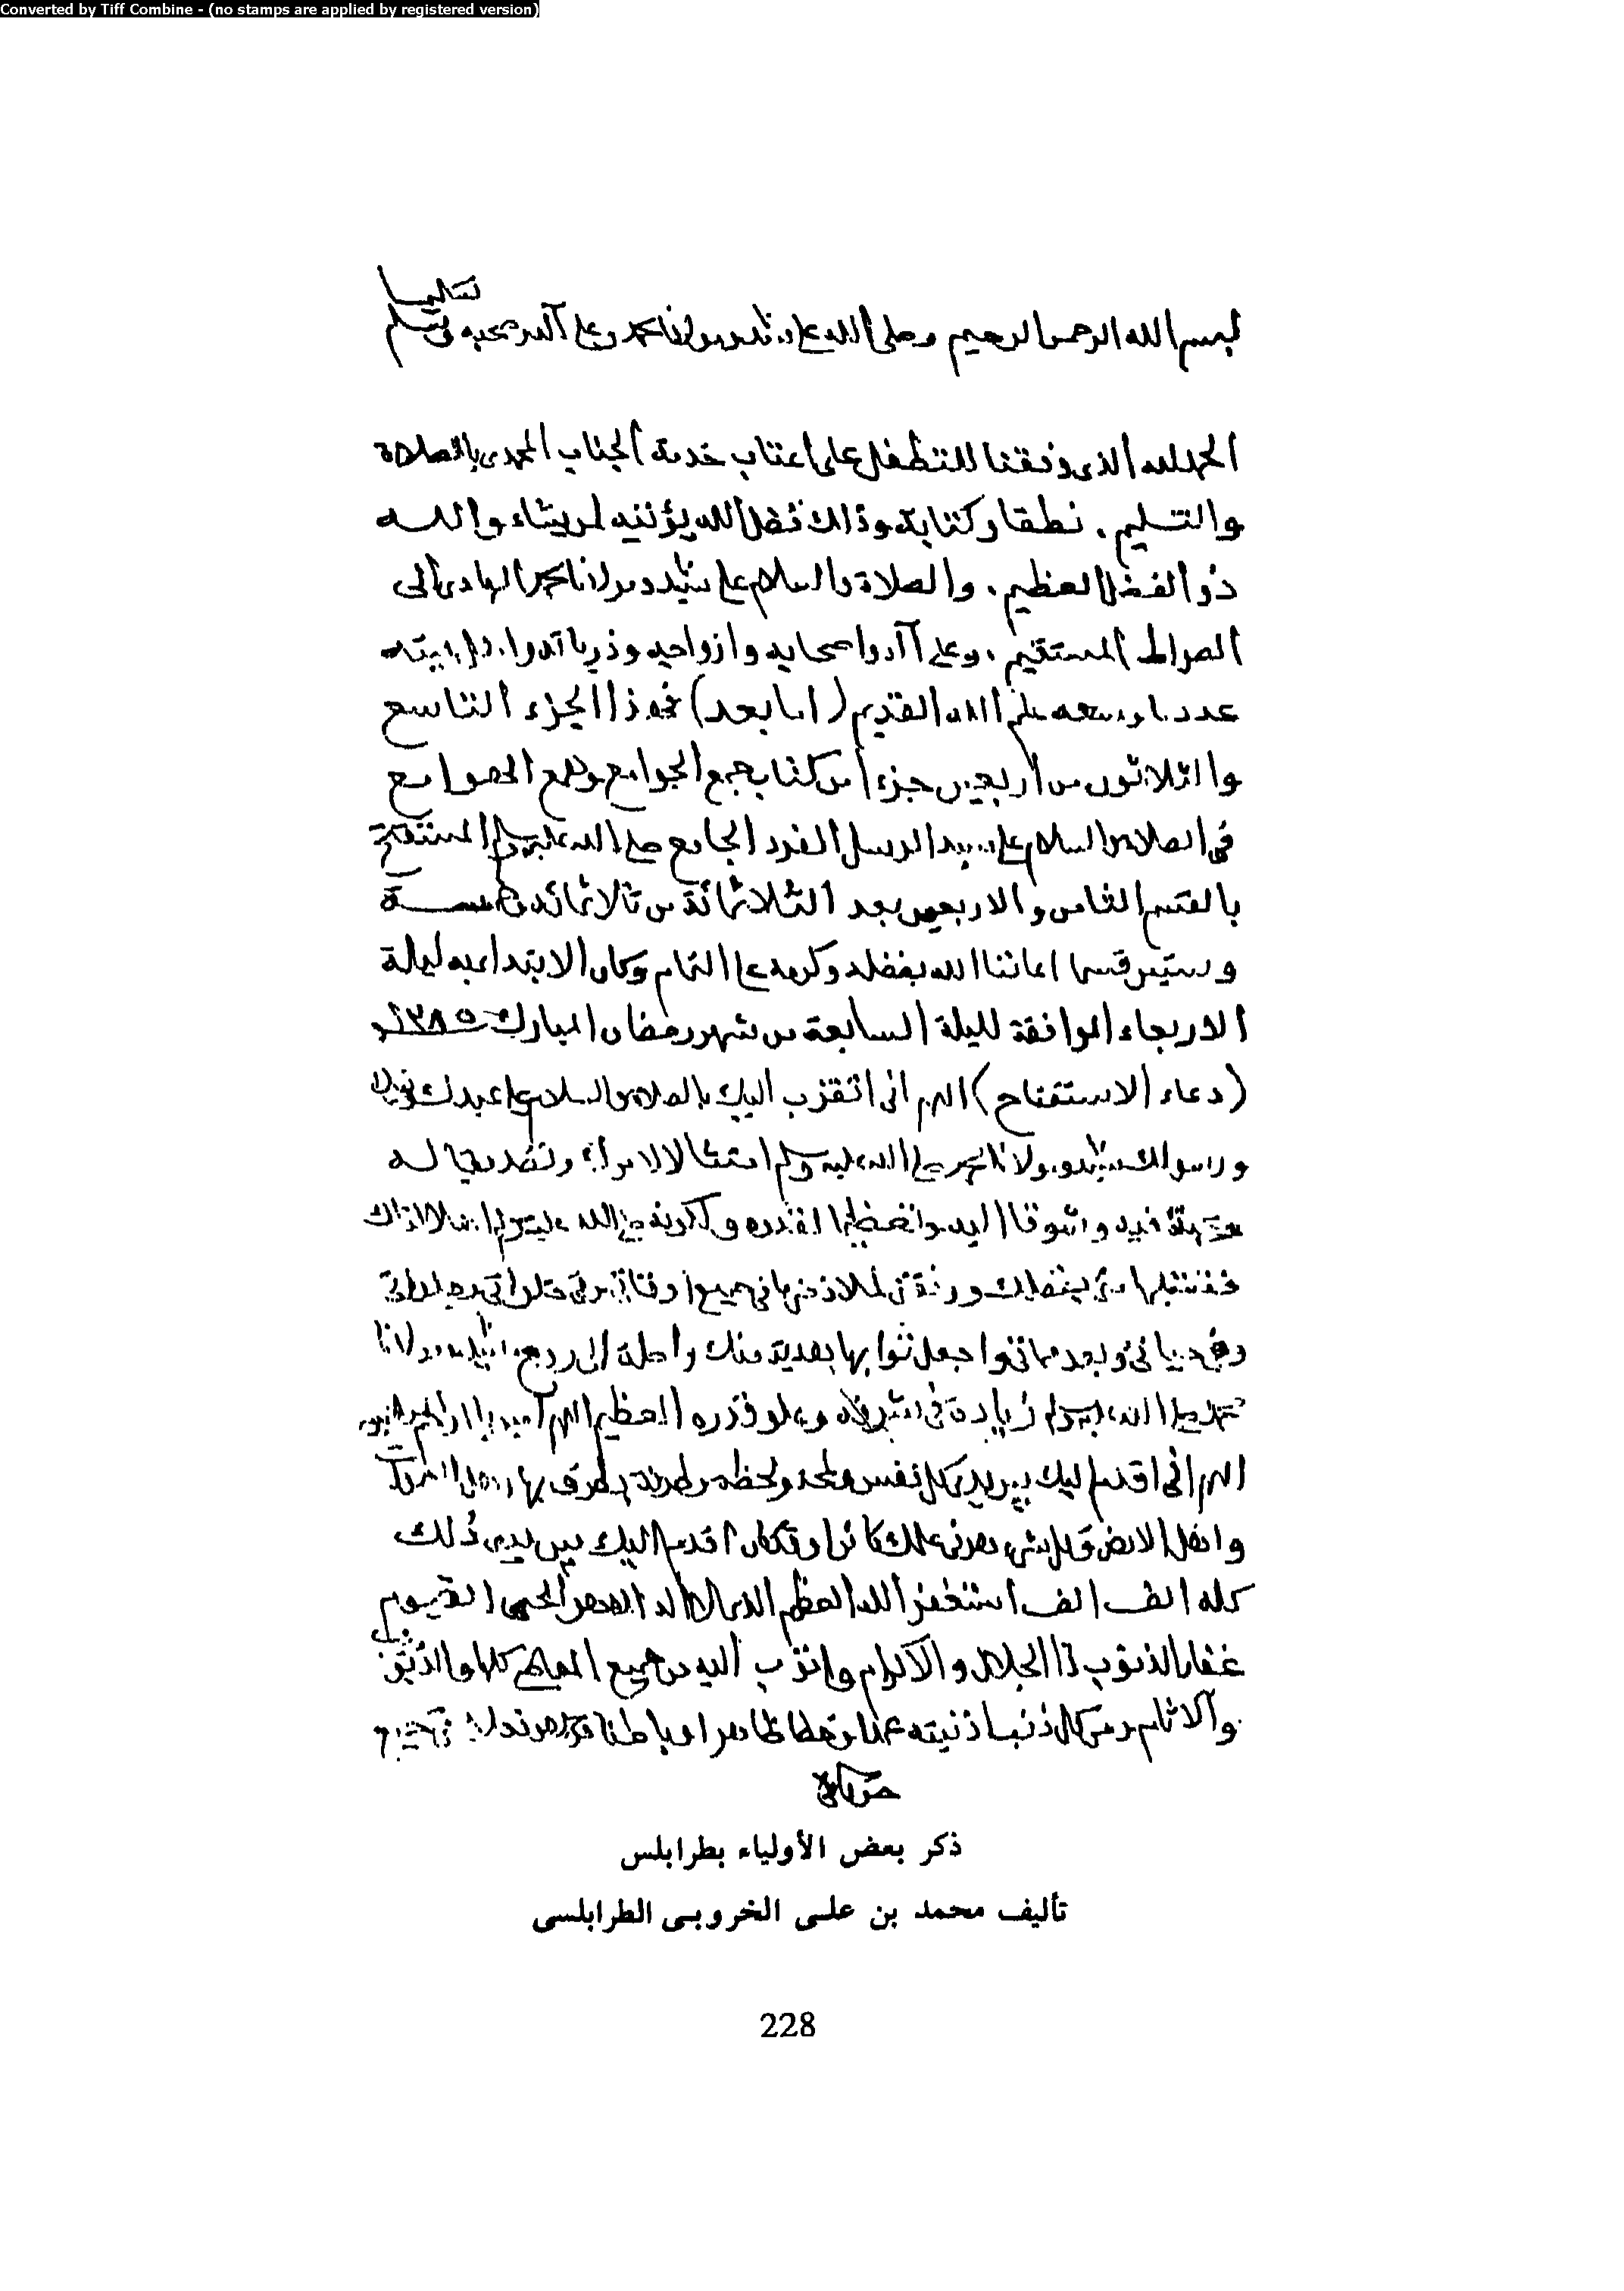 Converted by Tiff Combine - (no stamps are applied by registered version)
تسليما
بسم الله الرحمن الرحيم وصلى الله على سيدنا ومولانا محمد وعلى آله وصحبه وسلم
الحمد لله الذى وفقنا للتطفل على اعتاب خدمة الجناب المحمدى بالصلاة
والتسليم . نطقا وكتابة وذالك فضل الله يؤتيه لمن يشاء والله
ذو الفضل العظيم . والصلاة والسلام على سيدنا ومولانا محمد الهادى الى
الصراط المستقيم . وعلى آله واصحابه وازواجه وذرياته واهل بيته
عدد ما وسعه علم الله القديم (اما بعد) فهذا الجزء التاسع
والثلاثون من اربعين جزءا من كتاب جمع الجوامع الصوامع
فى الصلاة والسلام على سيد الرسل الفرد الجامع صلى الله عليه وسلم المستفتح
بالقسم الثامن والاربعين بعد الثلاثمائة من ثلاثمائة وخمسة
وستين قسما اعاننا الله بفضله وكرمه على التمام وكان الابتداء به ليلة
الاربعاء الموافقة لليلة السابعة من شهر رمضان المبارك ١٣٨٥
(دعاء الاستفتاح) اللهم انى اتقرب اليك بالصلاة والسلام على عبدك ونبيك
ورسولك سيدنا ومولانا محمد صلى الله عليه وسلم امتثالا لامرك وتصديقا له
ومحبة فيه وشوقا اليه وتعظيما لقدره
فتقبلها منى بفضلك ووفقنى لملازمتها فى جميع اوقاتى
وفى حياتى وبعد مماتى واجعل ثوابها هدية منك واصلة الى روح سيدنا ومولانا
محمد صلى الله عليه وسلم زيادة فى شرفه وعلو قدره العظيم اللهم آمين
اللهم انى اقدم اليك بين يدى كل نفس ولمحة ولحظة وطرفة يطرف بها اهل السموات
واهل الارض وكل شىء هو فى علمك كائن او قد كان اقدم اليك بين يدى ذلك
كله الف الف استغفر الله العظيم الذى لا اله الا هو الحى القيوم
غفار الذنوب ذا الجلال والاكرام واتوب اليه من جميع المعاصى كلها والذنوب
والآثام ومن كل ذنب اذنبته عمدا او خطأ ظاهرا او باطنا
ذكر بعض الأولياء بطرابلس
تأليف محمد بن على الخروبى الطرابلسى
228